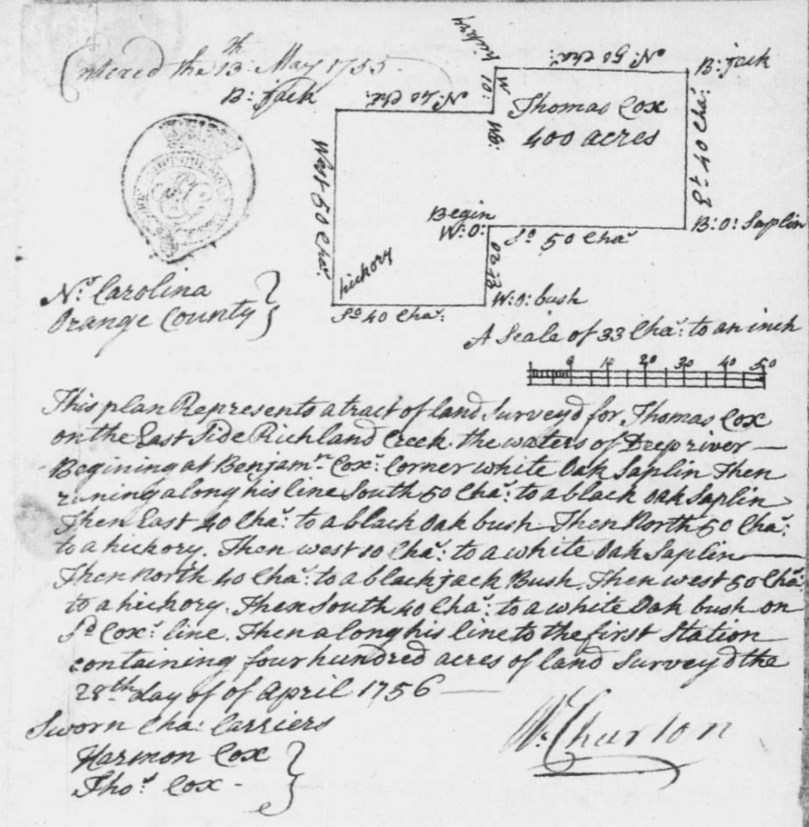 Entered the 13th May 1755
B: Jack
No. 40 Cha:
hickory
W 10:
Wo:
No. 50 Cha:
B: Jack
Thomas Cox
400 acres
So 40 Cha:
B: O: Saplin
Begin
W: O:
So 50 Cha:
West 50 Cha:
hickory
So 40 Cha:
W: O: bush
No. Carolina
Orange County
A Scale of 33 Cha: to an inch
10 20 30 40 50
This plan Represents a tract of land Survey'd for Thomas Cox
on the East Side Richland Creek the waters of Deep river
Begining at Benjamn. Coxs. Corner white Oak Saplin Then
runing along his line South 50 Cha: to a black oak Saplin
Then East 40 Cha: to a black Oak bush Then North 50 Cha:
to a hickory. Then west 10 Cha: to a white Oak Saplin
Then North 40 Cha: to a black jack Bush. Then west 50 Cha:
to a hickory. Then South 40 Cha: to a white Oak bush on
Sd. Coxs. line. Then along his line to the first Station
containing four hundred acres of land Survey'd the
28th. day of of April 1756
Wm. Churton
Sworn Cha: Carriers
Harmon Cox
Thos. Cox